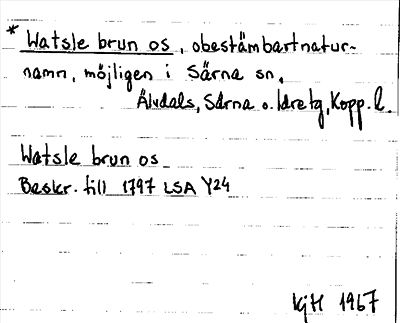 * Watsle brun os, obestämbart natur-
namn, möjligen i Särna sn,
Älvdals, Särna o. Idre tg, Kopp. l.
Watsle brun os
Beskr. till 1797 LSA Y24
KjH 1967